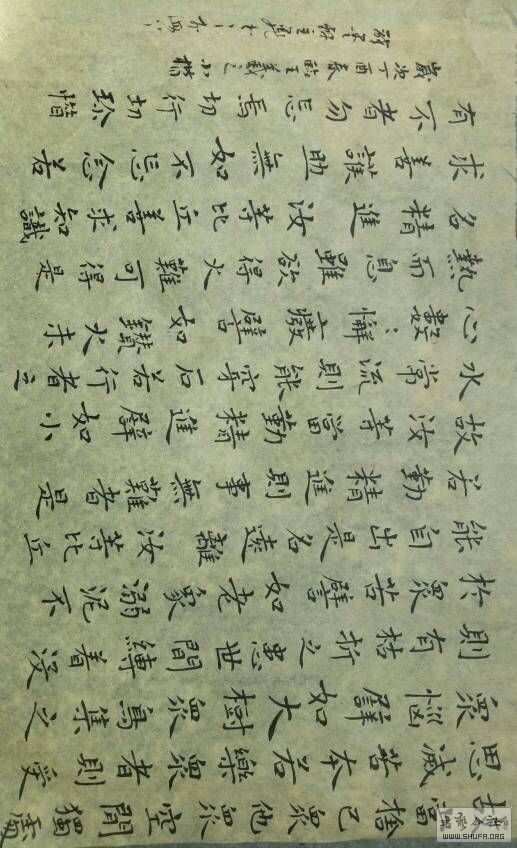 故當捨己眾他眾空閒獨處
思滅苦本若樂眾者則受
眾惱譬如大樹眾鳥集之
則有枯折之患世間縛着沒
於眾苦譬如老象溺泥不
能自出是名遠離汝等比丘
若勤精進則事無難者是
故汝等當勤精進譬如小
水常流則能穿石若行者之
心數〻懈廢譬如鑽火未
熱而息雖欲得火難可得是
名精進汝等比丘善求知識
求善護助無如不忘念若
有不者勿忘焉切行切珍惜
歲次丁酉春臨王羲之小楷
WWW.SHUFA.ORG